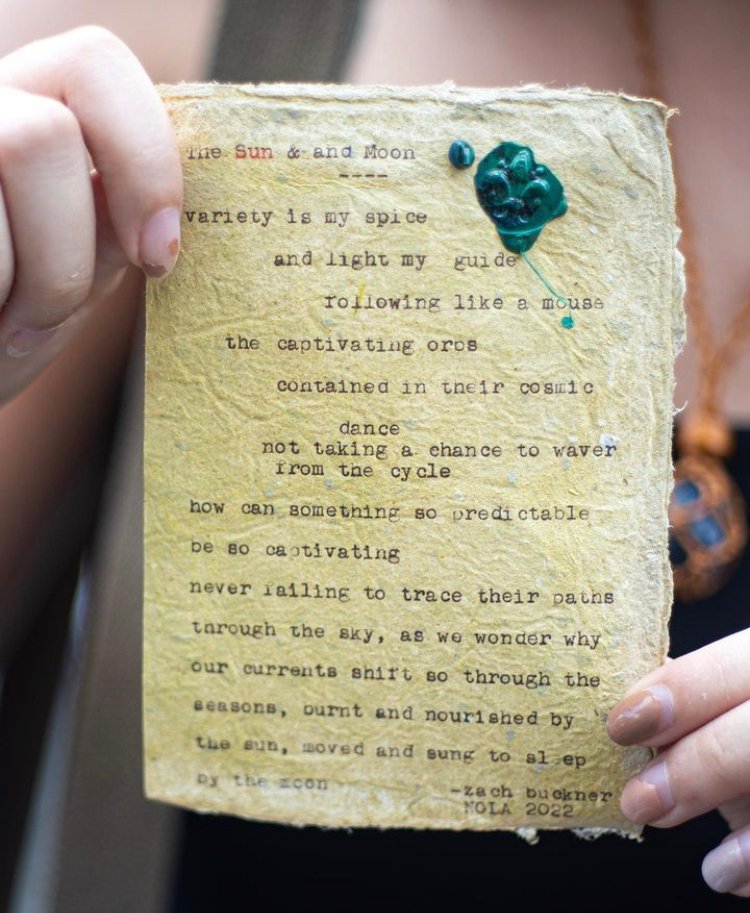 The Sun & and Moon
----
variety is my spice
and light my guide
following like a mouse
the captivating orbs
contained in their cosmic
dance
not taking a chance to waver
from the cycle
how can something so predictable
be so captivating
never failing to trace their paths
through the sky, as we wonder why
our currents shift so through the
seasons, burnt and nourished by
the sun, moved and sung to sl ep
by the moon
-zach buckner
NOLA 2022